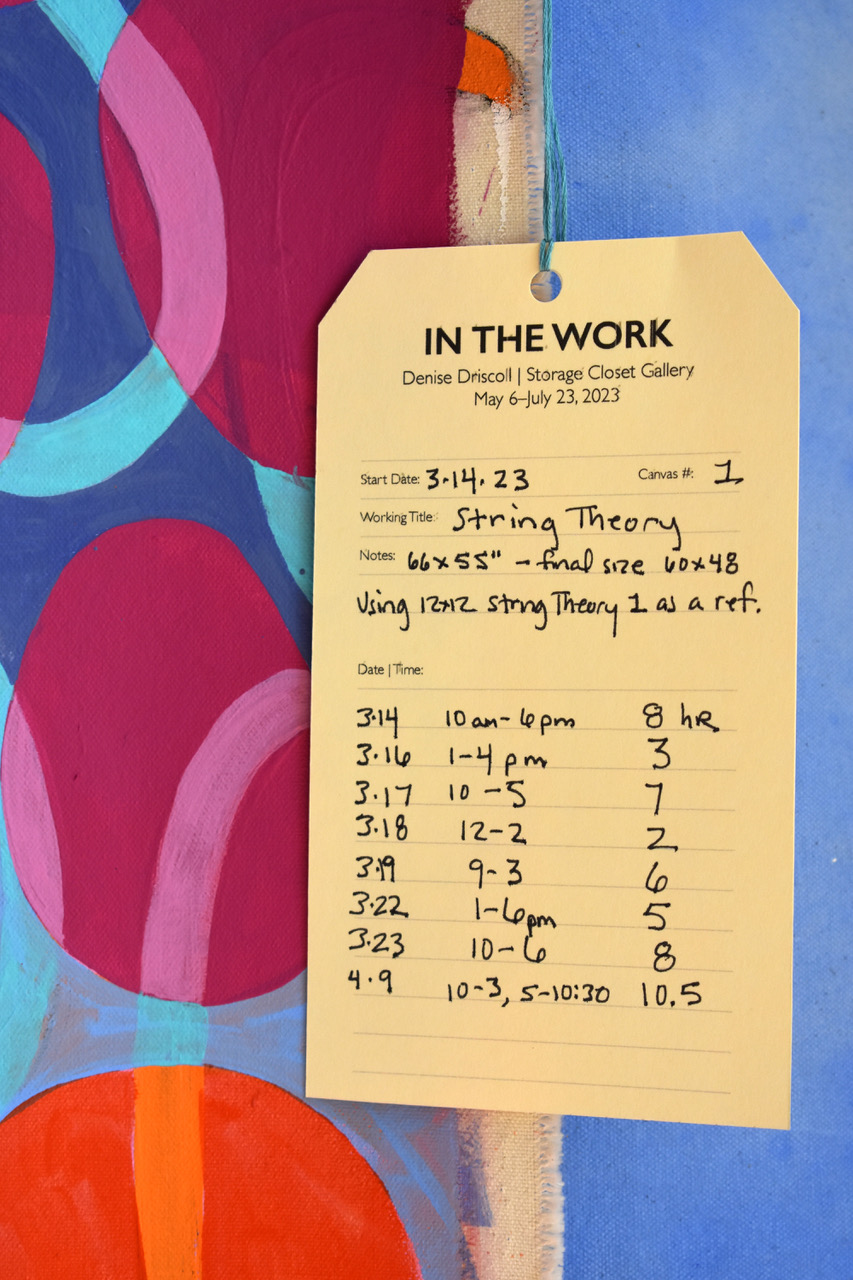 IN THE WORK
Denise Driscoll | Storage Closet Gallery
May 6–July 23, 2023
Start Date: 3·14·23 Canvas #: 1
Working Title: String Theory
Notes: 66x55" – final size 60x48
Using 12x12 String Theory 1 as a ref.
Date | Time:
3·14 10am-6pm 8 hR
3·16 1-4 pm 3
3·17 10-5 7
3·18 12-2 2
3·19 9-3 6
3·22 1-6pm 5
3·23 10-6 8
4·9 10-3, 5-10:30 10.5